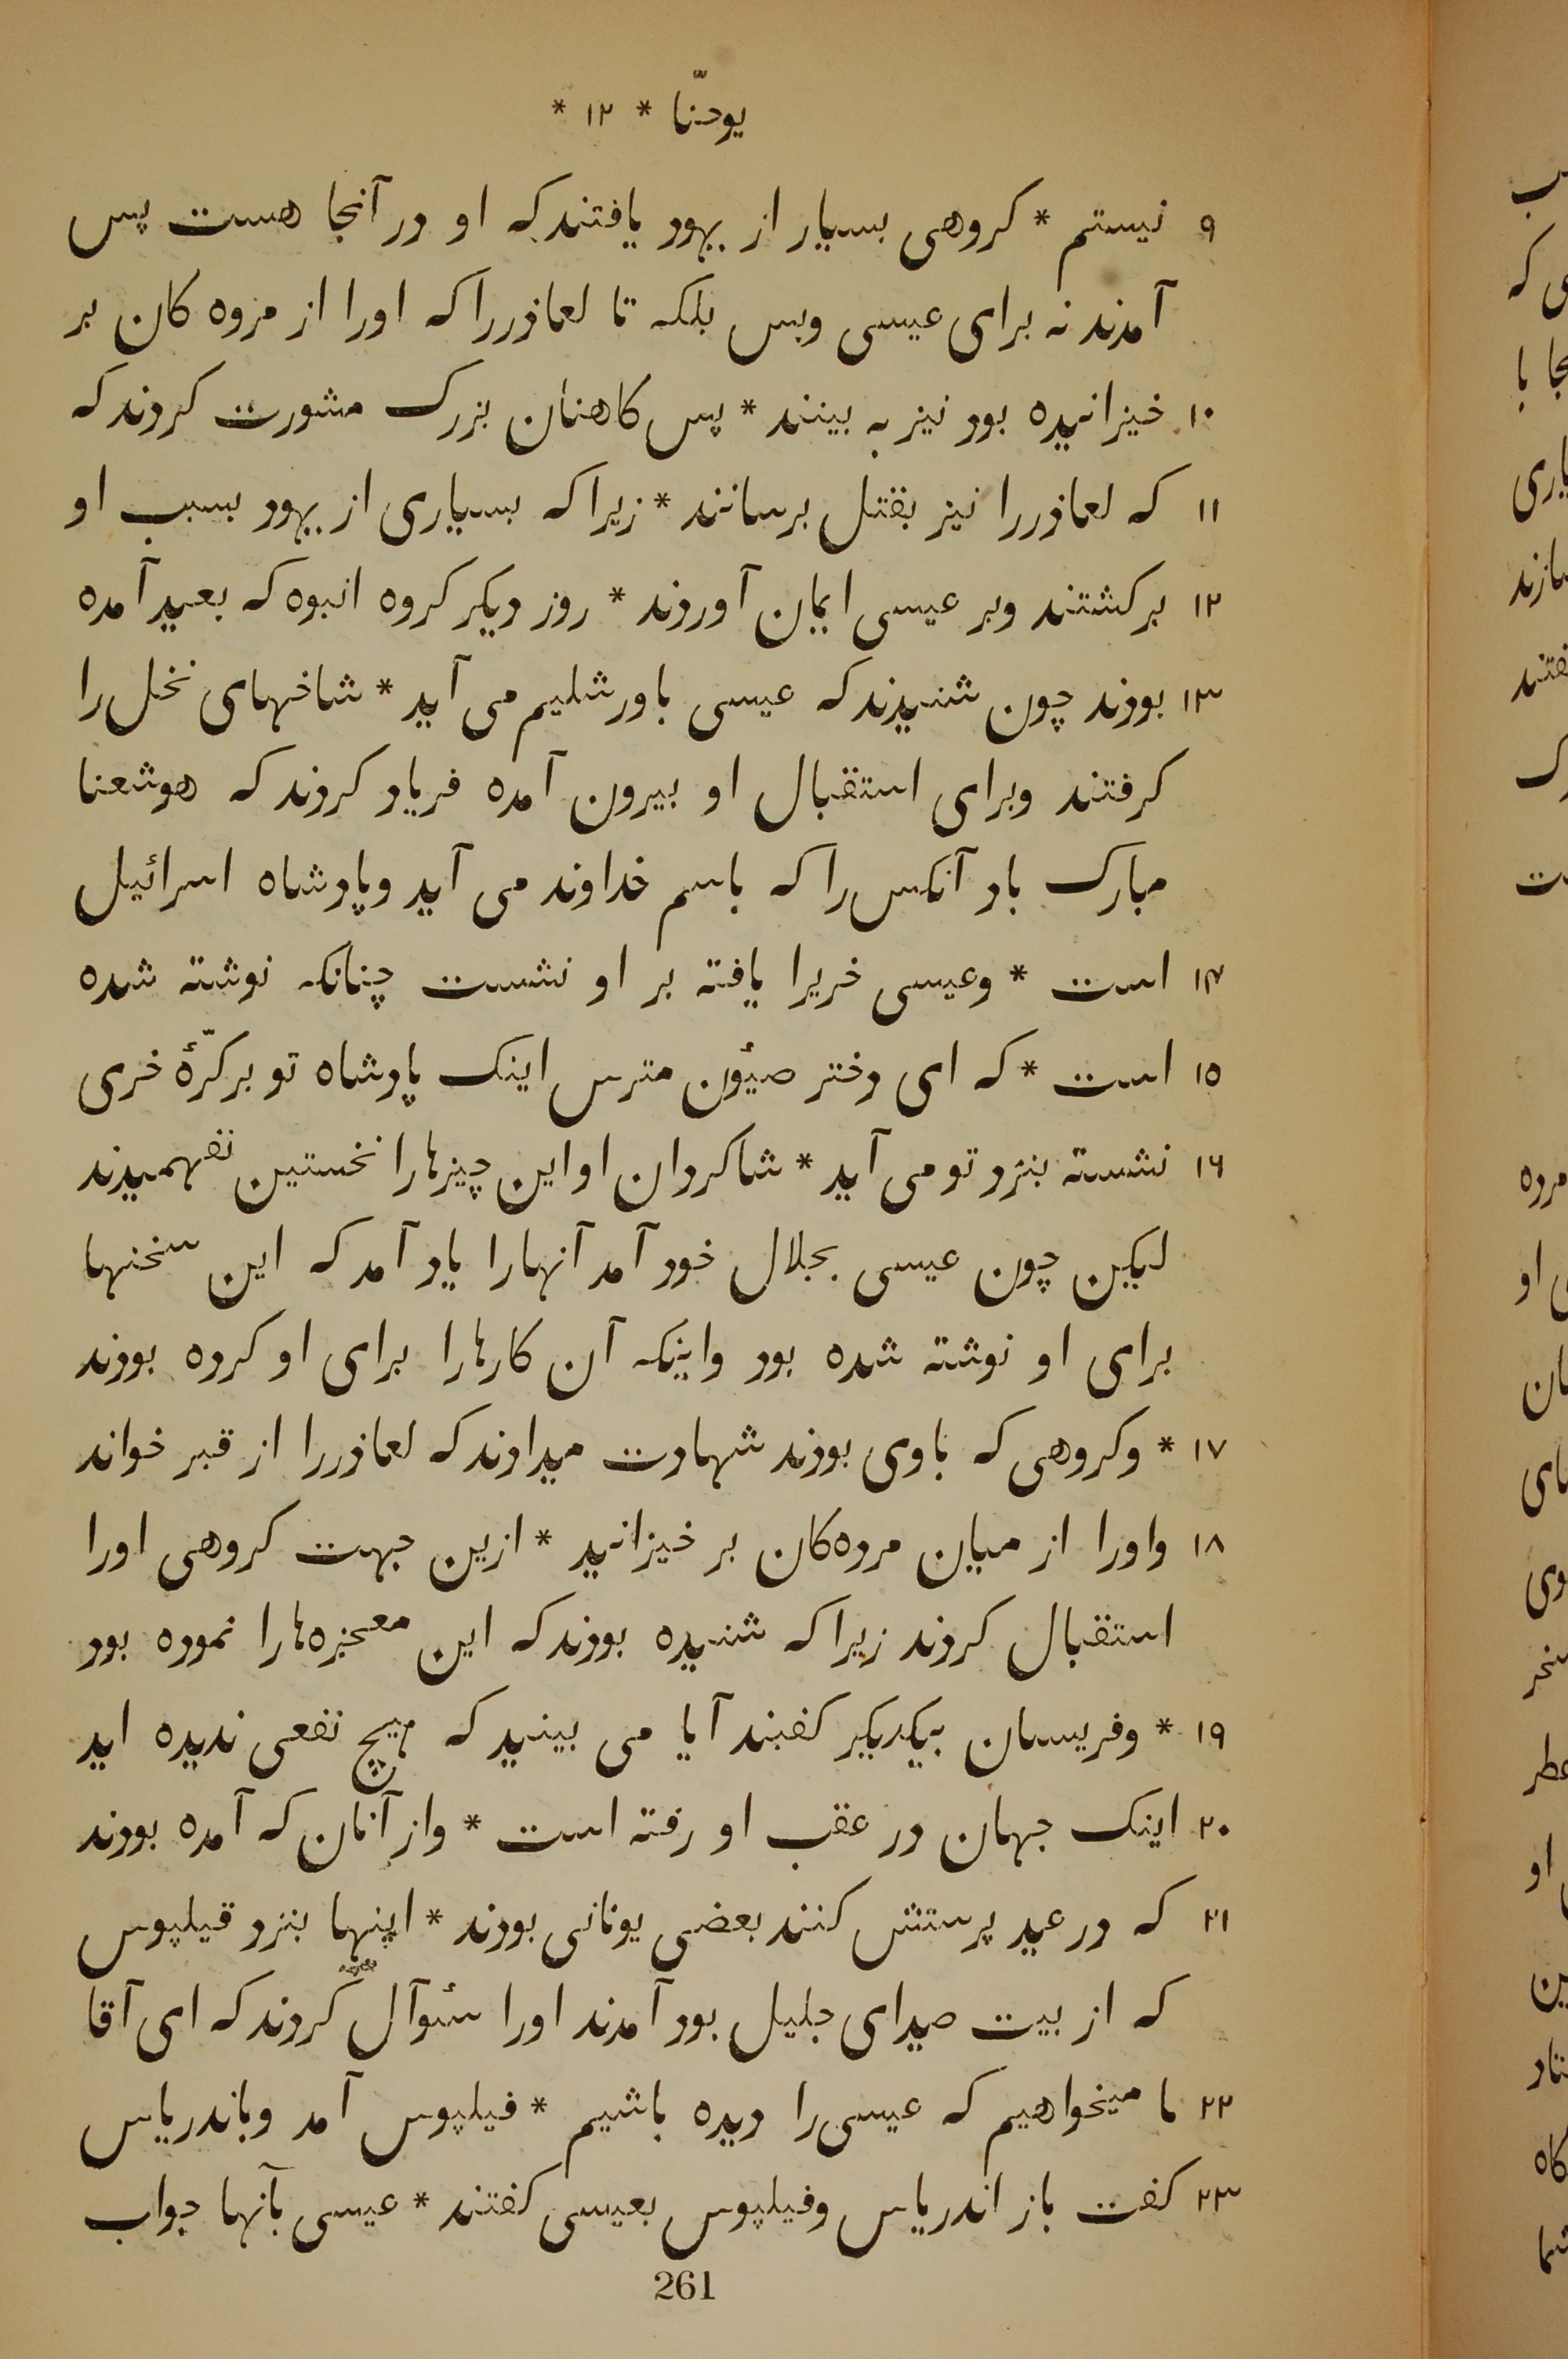 یوحنّا * ۱۲ *
۹ نیستم * کروهی بسیار از یهود یافتند که او در آنجا هست پس
آمدند نه برای عیسی وبس بلکه تا لعاذررا که اورا از مرده کان بر
۱۰ خیزانیده بود نیز به بینند * پس کاهنان بزرک مشورت کردند که
۱۱ که لعاذررا نیز بقتل برسانند * زیرا که بسیاری از یهود بسبب او
۱۲ برکشتند وبر عیسی ایمان آوردند * روز دیکر کروه انبوه که بعید آمده
۱۳ بودند چون شنیدند که عیسی باورشلیم می آید * شاخهای نخل را
کرفتند وبرای استقبال او بیرون آمده فریاد کردند که هوشعنا
مبارک باد آنکس را که باسم خداوند می آید وپادشاه اسرائیل
۱۴ است * وعیسی خریرا یافته بر او نشست چنانکه نوشته شده
۱۵ است * که ای دختر صیؤن مترس اینک پادشاه تو بر کرّۀ خری
۱۶ نشسته بنزد تو می آید * شاکردان او این چیزهارا نخستین نفهمیدند
لیکین چون عیسی بجلال خود آمد آنهارا یاد آمد که این سخنها
برای او نوشته شده بود واینکه آن کارهارا برای او کرده بودند
۱۷ * وکروهی که باوی بودند شهادت میدادند که لعاذررا از قبر خواند
۱۸ واورا از میان مرده‌کان بر خیزانید * ازین جهت کروهی اورا
استقبال کردند زیرا که شنیده بودند که این معجزه‌هارا نموده بود
۱۹ * وفریسان بیکدیکر کفبند آیا می بینید که هیچ نفعی ندیده اید
۲۰ اینک جهان در عقب او رفته است * واز آنان که آمده بودند
۲۱ که در عید پرستش کنند بعضی یونانی بودند * اپنها بنزد قیلپوس
که از بیت صیدای جلیل بود آمدند اورا سئوآل کردند که ای آقا
۲۲ ما میخواهیم که عیسی را دیده باشیم * فیلپوس آمد وباندریاس
۲۳ کفت باز اندریاس وفیلپوس بعیسی کفتند * عیسی بآنها جواب
261